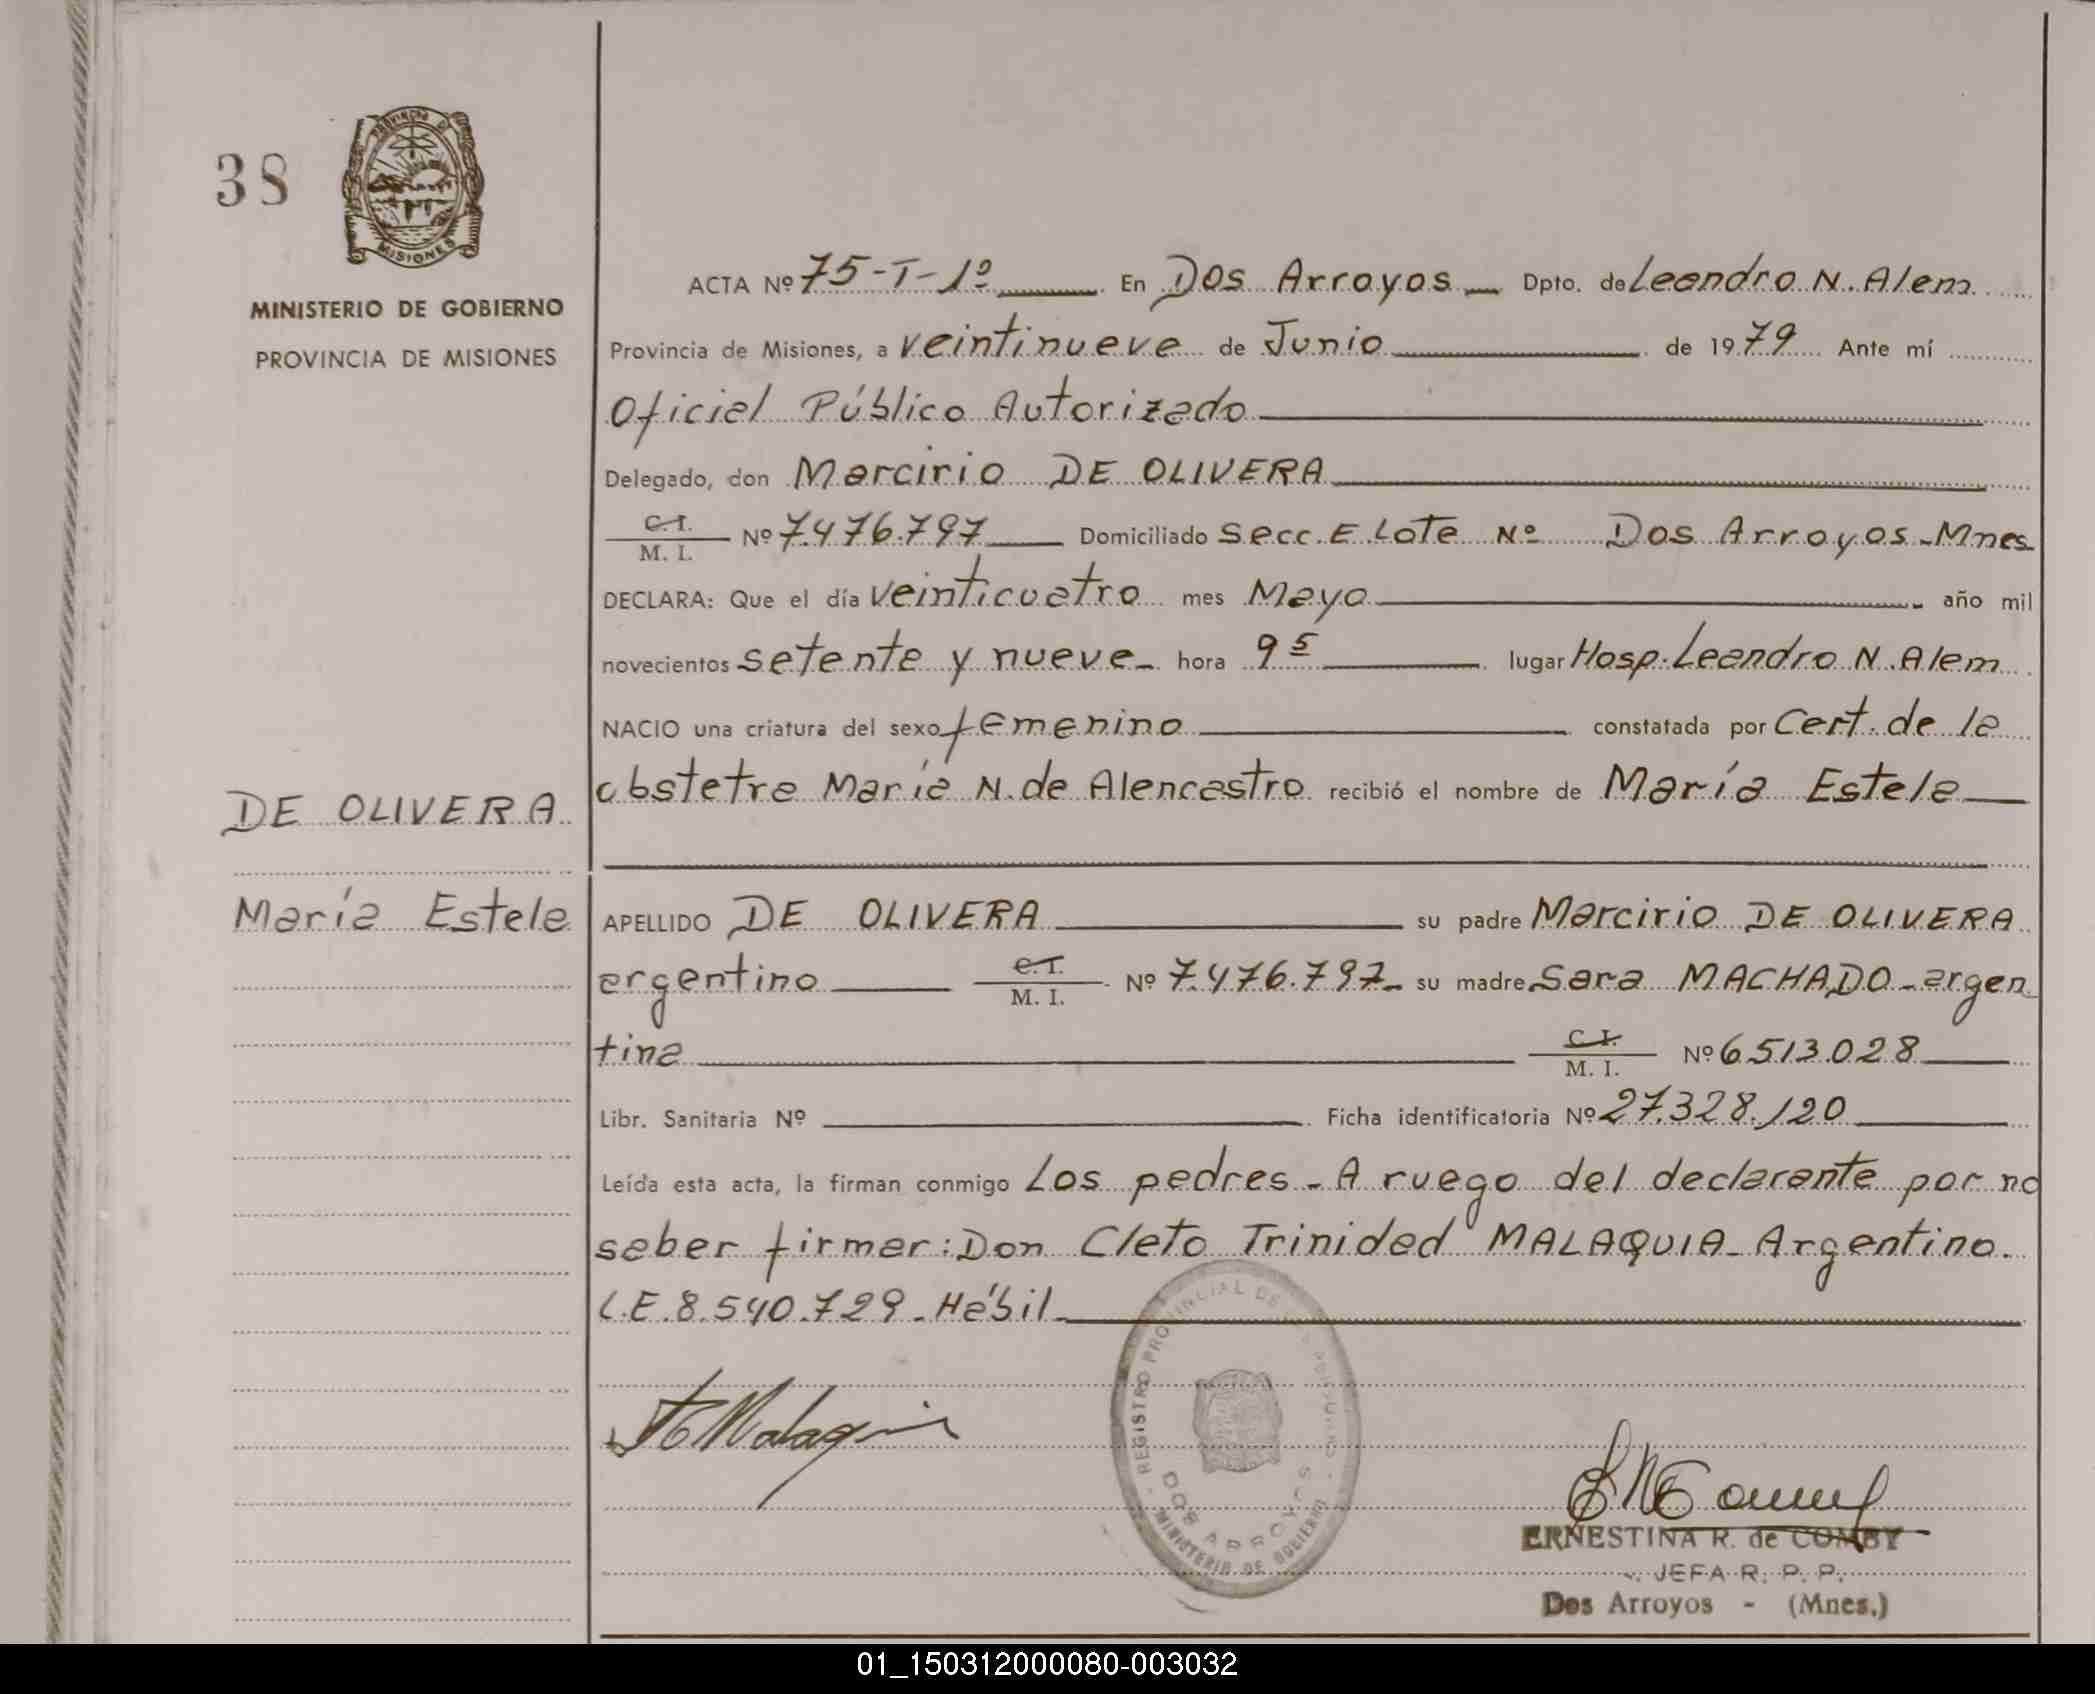 38
PROVINCIA D
MISIONES
MINISTERIO DE GOBIERNO
PROVINCIA DE MISIONES
ACTA Nº 75-T-1º En Dos Arroyos Dpto. de Leandro N. Alem
Provincia de Misiones, a veintinueve de Junio de 1979 Ante mí
Oficial Público Autorizado
Delegado, don Marcirio DE OLIVERA
C.I.
M. I. Nº 7.476.797 Domiciliado Secc. E Lote Nº Dos Arroyos - Mnes
DECLARA: Que el día veinticuatro mes Mayo año mil
novecientos setenta y nueve hora 9 5 lugar Hosp. Leandro N. Alem
NACIO una criatura del sexo femenino constatada por Cert. de la
obstetra María N. de Alencastro recibió el nombre de María Estela
DE OLIVERA
María Estela
APELLIDO DE OLIVERA su padre Marcirio DE OLIVERA
argentino C.I. M. I. Nº 7.476.797 su madre Sara MACHADO - argen
tina C.I. M. I. Nº 6.513.028
Libr. Sanitaria Nº Ficha identificatoria Nº 27.328.120
Leída esta acta, la firman conmigo Los padres - A ruego del declarante por no
saber firmar: Don Cleto Trinidad MALAQUIA - Argentino.
L.E. 8.540.729 - Hábil
Malaqui
REGISTRO PROVINCIAL DE
DOS ARROYOS
MINISTERIO DE GOBIERNO
ERNESTINA R. de COMBY
JEFA R. P. P.
Dos Arroyos - (Mnes.)
01_150312000080-003032